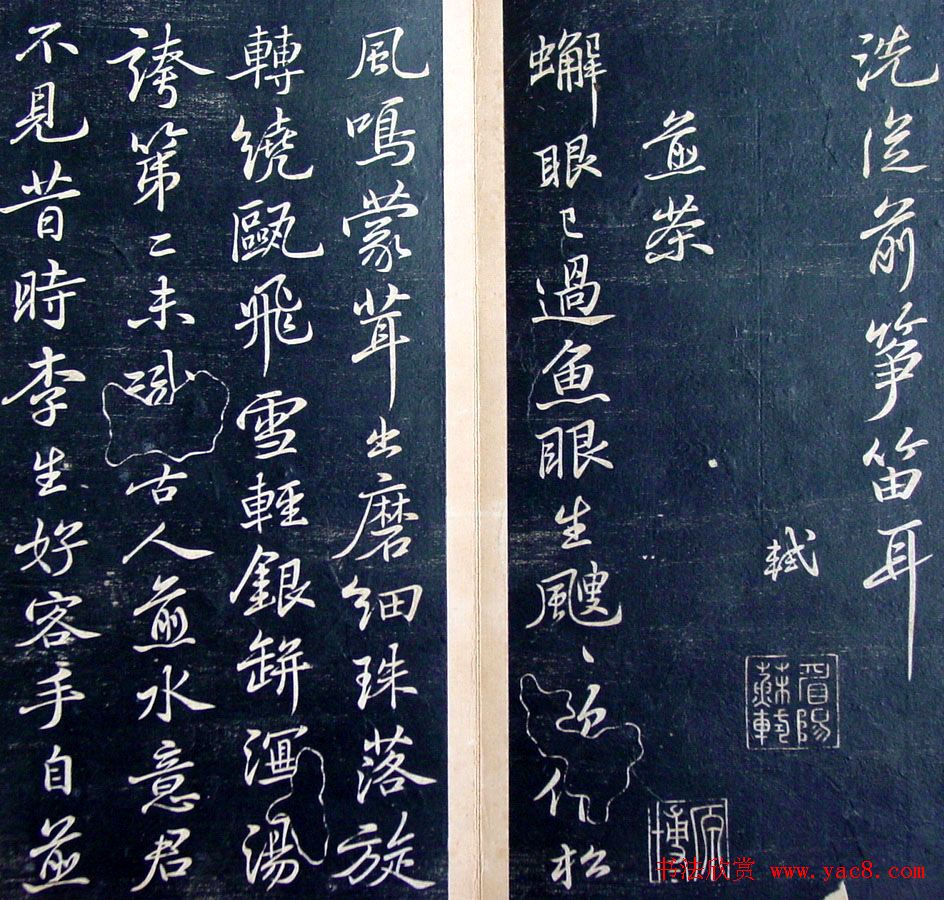 洗從前箏笛耳
軾
眉陽蘇軾
煎茶
原博
蠏眼已過魚眼生颼〻欲作松
風鳴蒙茸出磨細珠落旋
轉繞甌飛雪輕銀缾瀉湯
誇第二未識古人煎水意君
不見昔時李生好客手自煎
书法欣赏 www.yac8.com